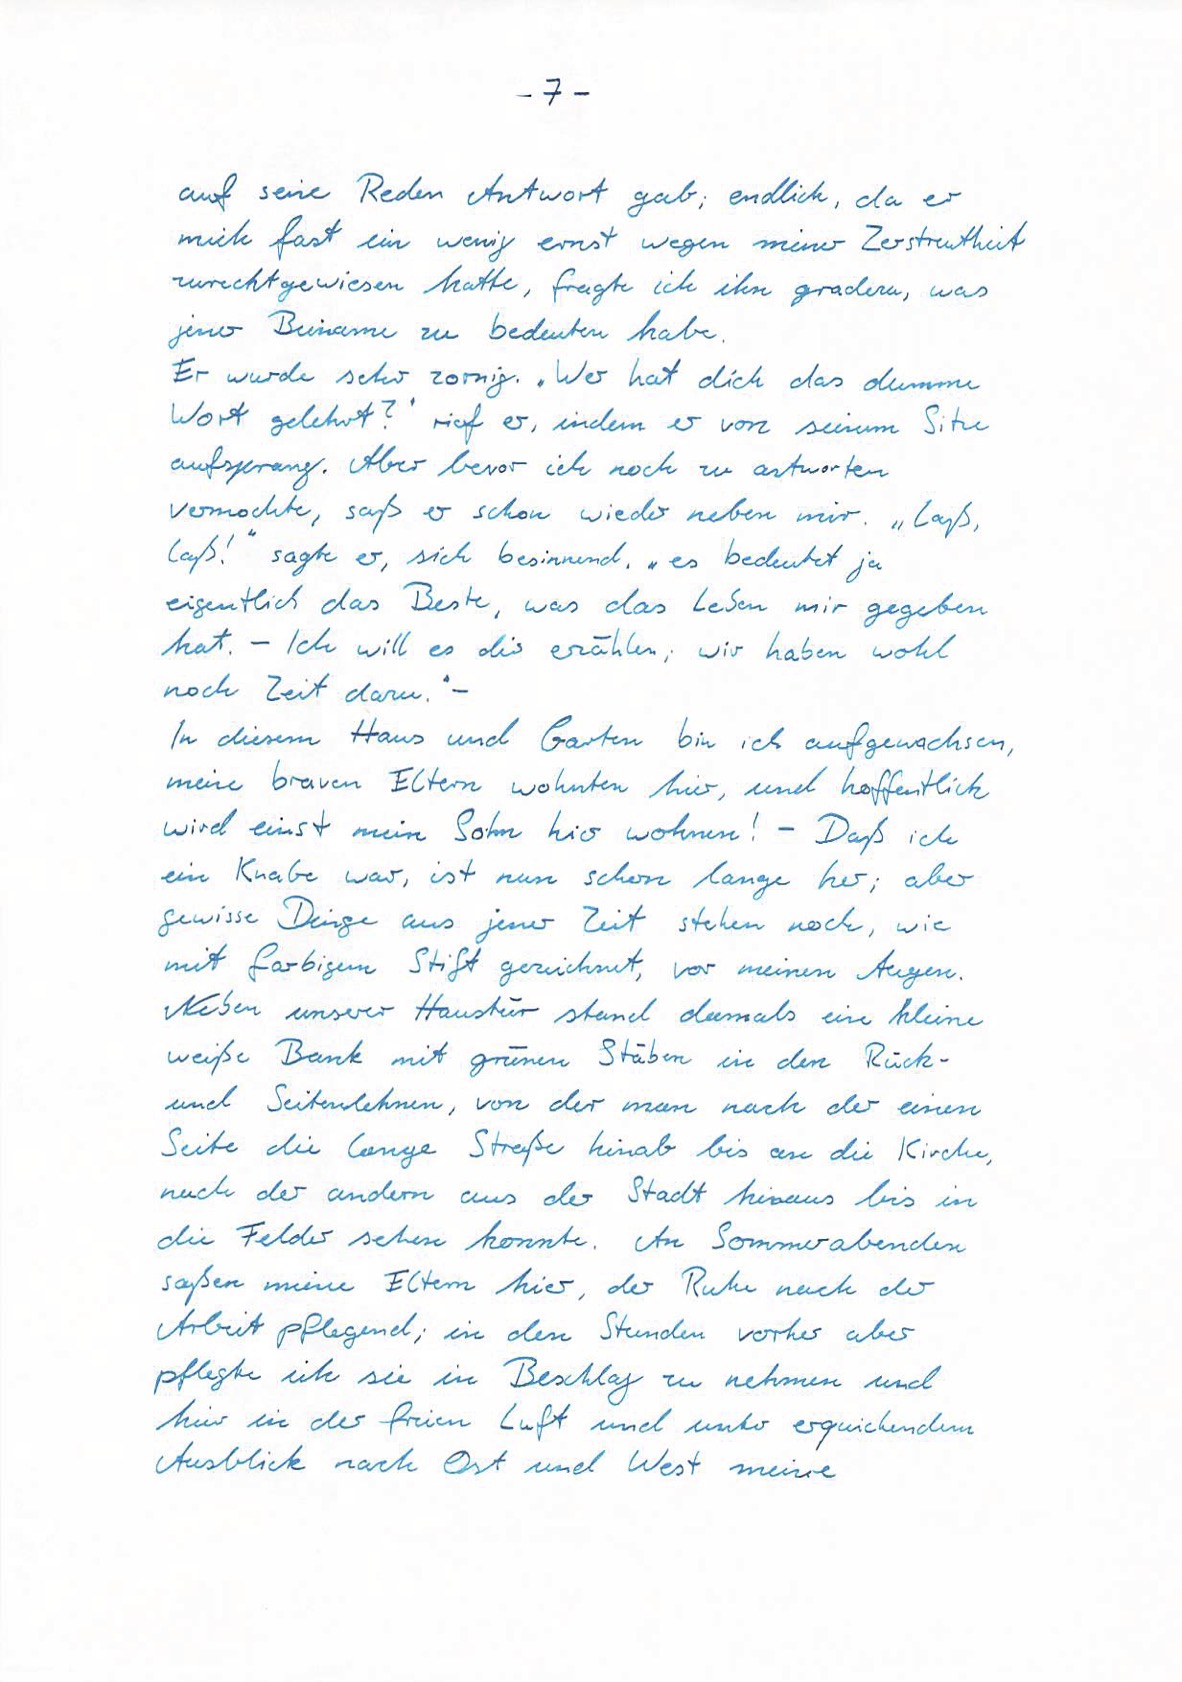 - 7 -
auf seine Reden Antwort gab; endlich, da er
mich fast ein wenig ernst wegen meiner Zerstreutheit
zurechtgewiesen hatte, fragte ich ihn gradezu, was
jener Beiname zu bedeuten habe.
Er wurde sehr zornig. „Wer hat dich das dumme
Wort gelehrt?" rief er, indem er von seinem Sitze
aufsprang. Aber bevor ich noch zu antworten
vermochte, saß er schon wieder neben mir. „Laß,
laß!" sagte er, sich besinnend, „es bedeutet ja
eigentlich das Beste, was das Leben mir gegeben
hat. – Ich will es dir erzählen; wir haben wohl
noch Zeit dazu." –
In diesem Haus und Garten bin ich aufgewachsen,
meine braven Eltern wohnten hier, und hoffentlich
wird einst mein Sohn hier wohnen! – Daß ich
ein Knabe war, ist nun schon lange her; aber
gewisse Dinge aus jener Zeit stehen noch, wie
mit farbigem Stift gezeichnet, vor meinen Augen.
Neben unserer Haustür stand damals eine kleine
weiße Bank mit grünen Stäben in den Rück-
und Seitenlehnen, von der man nach der einen
Seite die lange Straße hinab bis an die Kirche,
nach der andern aus der Stadt hinaus bis in
die Felder sehen konnte. An Sommerabenden
saßen meine Eltern hier, der Ruhe nach der
Arbeit pflegend; in den Stunden vorher aber
pflegte ich sie in Beschlag zu nehmen und
hier in der freien Luft und unter erquickendem
Ausblick nach Ost und West meine